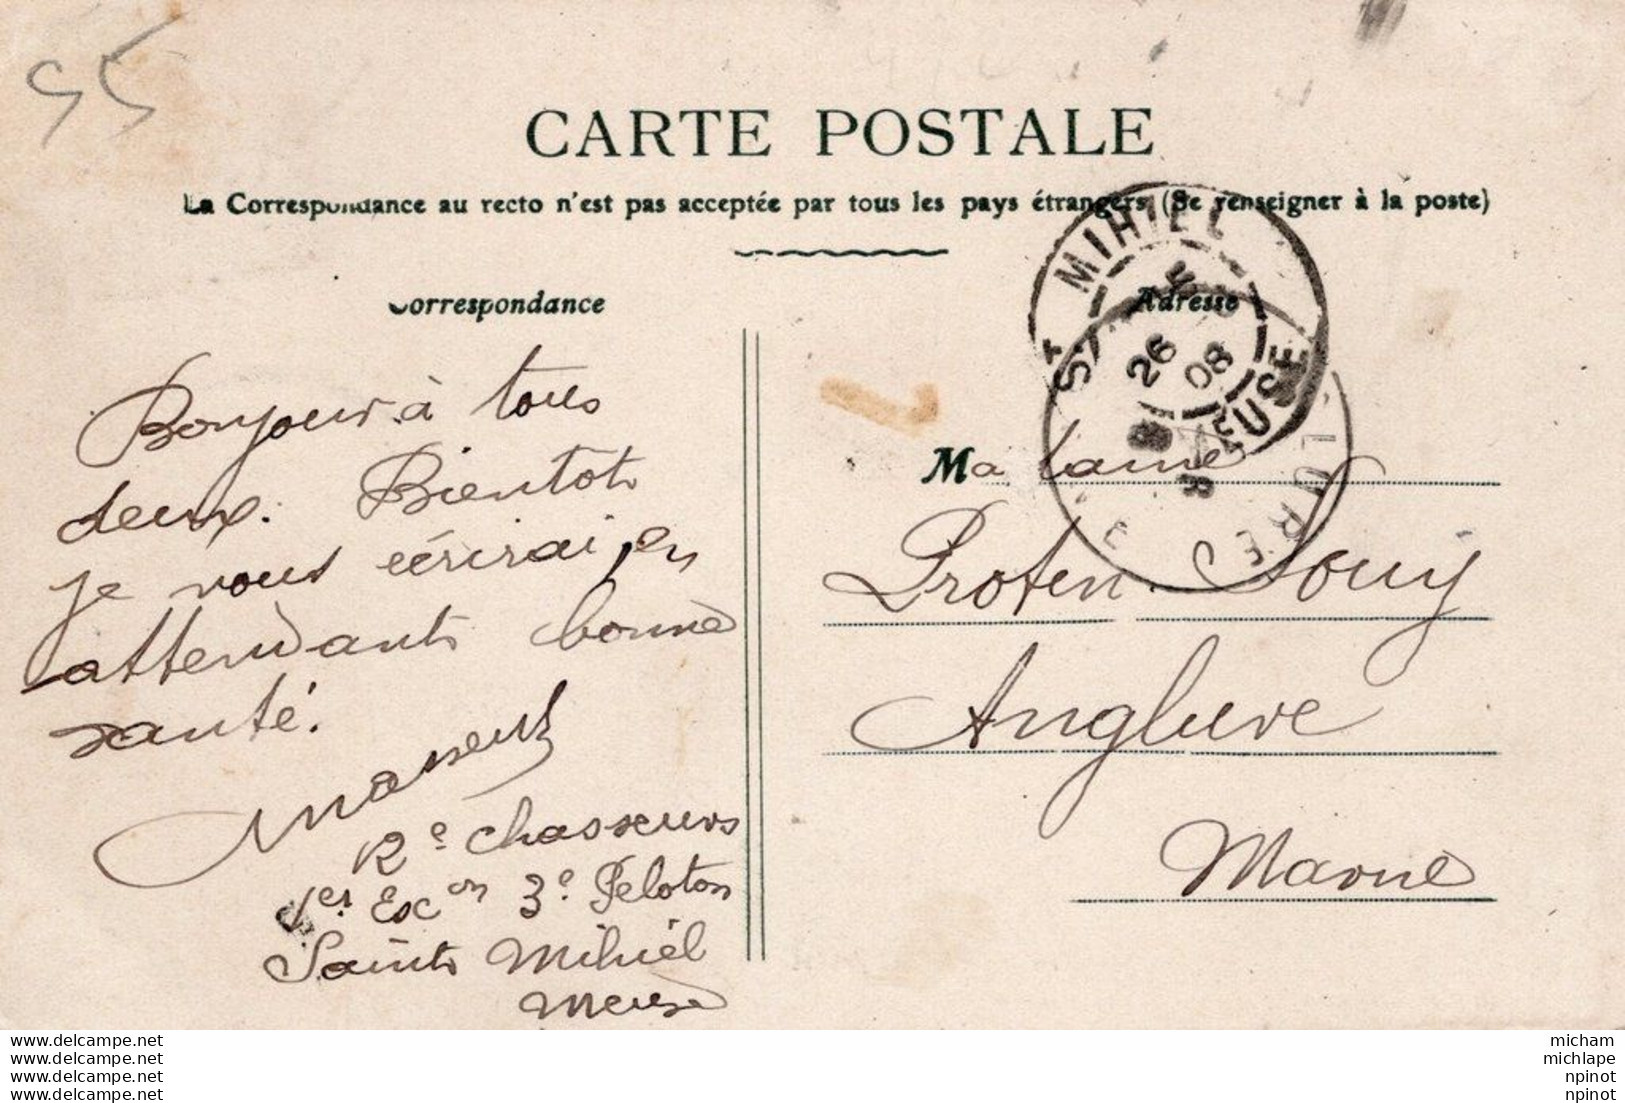 55
CARTE POSTALE
La Correspondance au recto n'est pas acceptée par tous les pays étrangers (Se renseigner à la poste)
Correspondance
Adresse
Bonjour à tous
deux. Bientôt
je vous écrirai, en
attendant bonne
santé.
12e chasseurs
1er Escon 3e Peloton
Saint Mihiel
Meuse
ST MIHIEL
26
08
MEUSE
Madame
Proten Souy
Anglure
Marne
www.delcampe.net
www.delcampe.net
www.delcampe.net
www.delcampe.net
micham
michlape
npinot
npinot